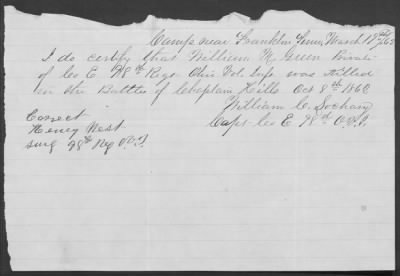 Camp near Franklin Tenn March 19th /63
I do certify that William R Green Private
of Co E 98th Regt Ohio Vol. Inft was killed
in the Battle of Choplain Hills Oct 8th 1862
William C.
Capt Co E 98th O.V.I.
Correct
Henry West
Surg 98th Reg O.V.I.